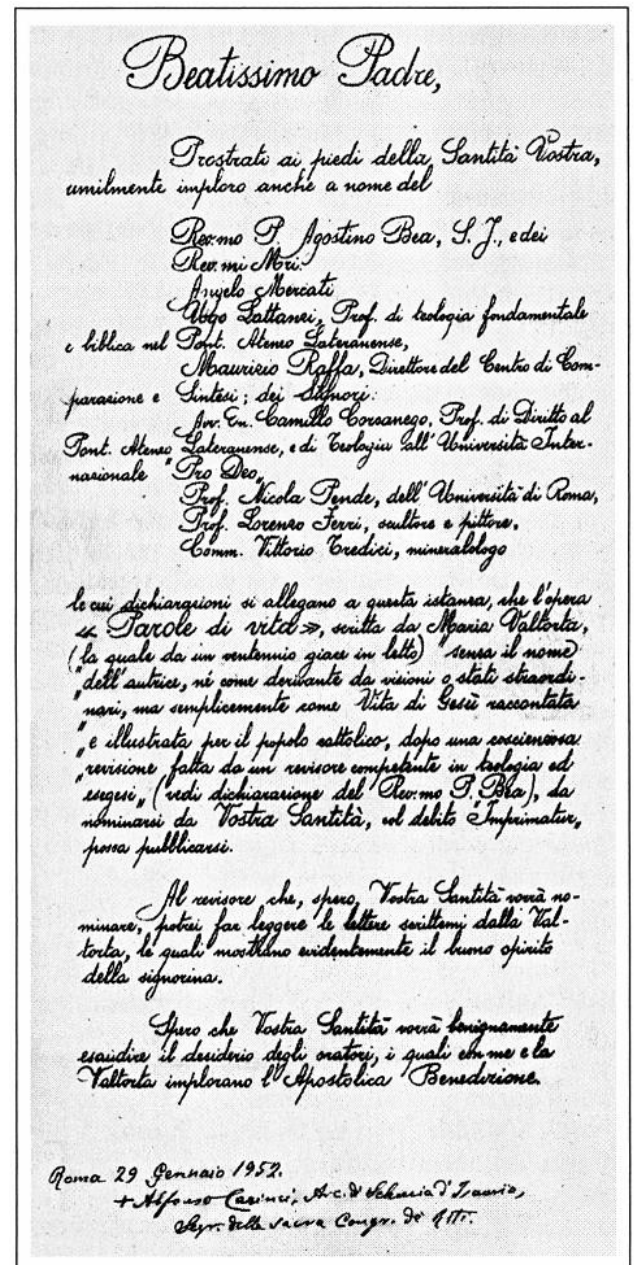 Beatissimo Padre,
Prostrati ai piedi della Santità Vostra,
umilmente imploro anche a nome del
Rev.mo P. Agostino Bea, S. J., e dei
Rev.mi Mri:
Angelo Mercati
Ugo Lattanzi, Prof. di teologia fondamentale
e biblica nel Pont. Ateneo Lateranense,
Maurizio Raffa, Direttore del Centro di Com-
parazione e Sintesi; dei Signori:
Avv. En. Camillo Corsanego, Prof. di Diritto al
Pont. Ateneo Lateranense, e di Teologia all'Università Inter-
nazionale "Pro Deo„
Prof. Nicola Pende, dell'Università di Roma,
Prof. Lorenzo Ferri, scultore e pittore,
Comm. Vittorio Tredici, mineralologo
le cui dichiarazioni si allegano a questa istanza, che l'opera
« Parole di vita », scritta da Maria Valtorta,
(la quale da un ventennio giace in letto) "senza il nome
"dell'autrice, nè come derivante da visioni o stati straordi-
"nari, ma semplicemente come Vita di Gesù raccontata
"e illustrata per il popolo cattolico, dopo una coscienziosa
"revisione fatta da un revisore competente in teologia ed
esegesi„ (vedi dichiarazione del Rev.mo P. Bea), da
nominarsi da Vostra Santità, col debito "Imprimatur„
possa pubblicarsi.
Al revisore che, spero, Vostra Santità vorrà no-
minare, potrei far leggere le lettere scrittemi dalla Val-
torta, le quali mostrano evidentemente il buono spirito
della signorina.
Spero che Vostra Santità vorrà benignamente
esaudire il desiderio degli oratori, i quali con me e la
Valtorta implorano l'Apostolica Benedizione.
Roma 29 Gennaio 1952.
+ Alfonso Carinci, Arc. di Seleucia d'Isauria,
Segr. della sacra Congr. de' Riti.